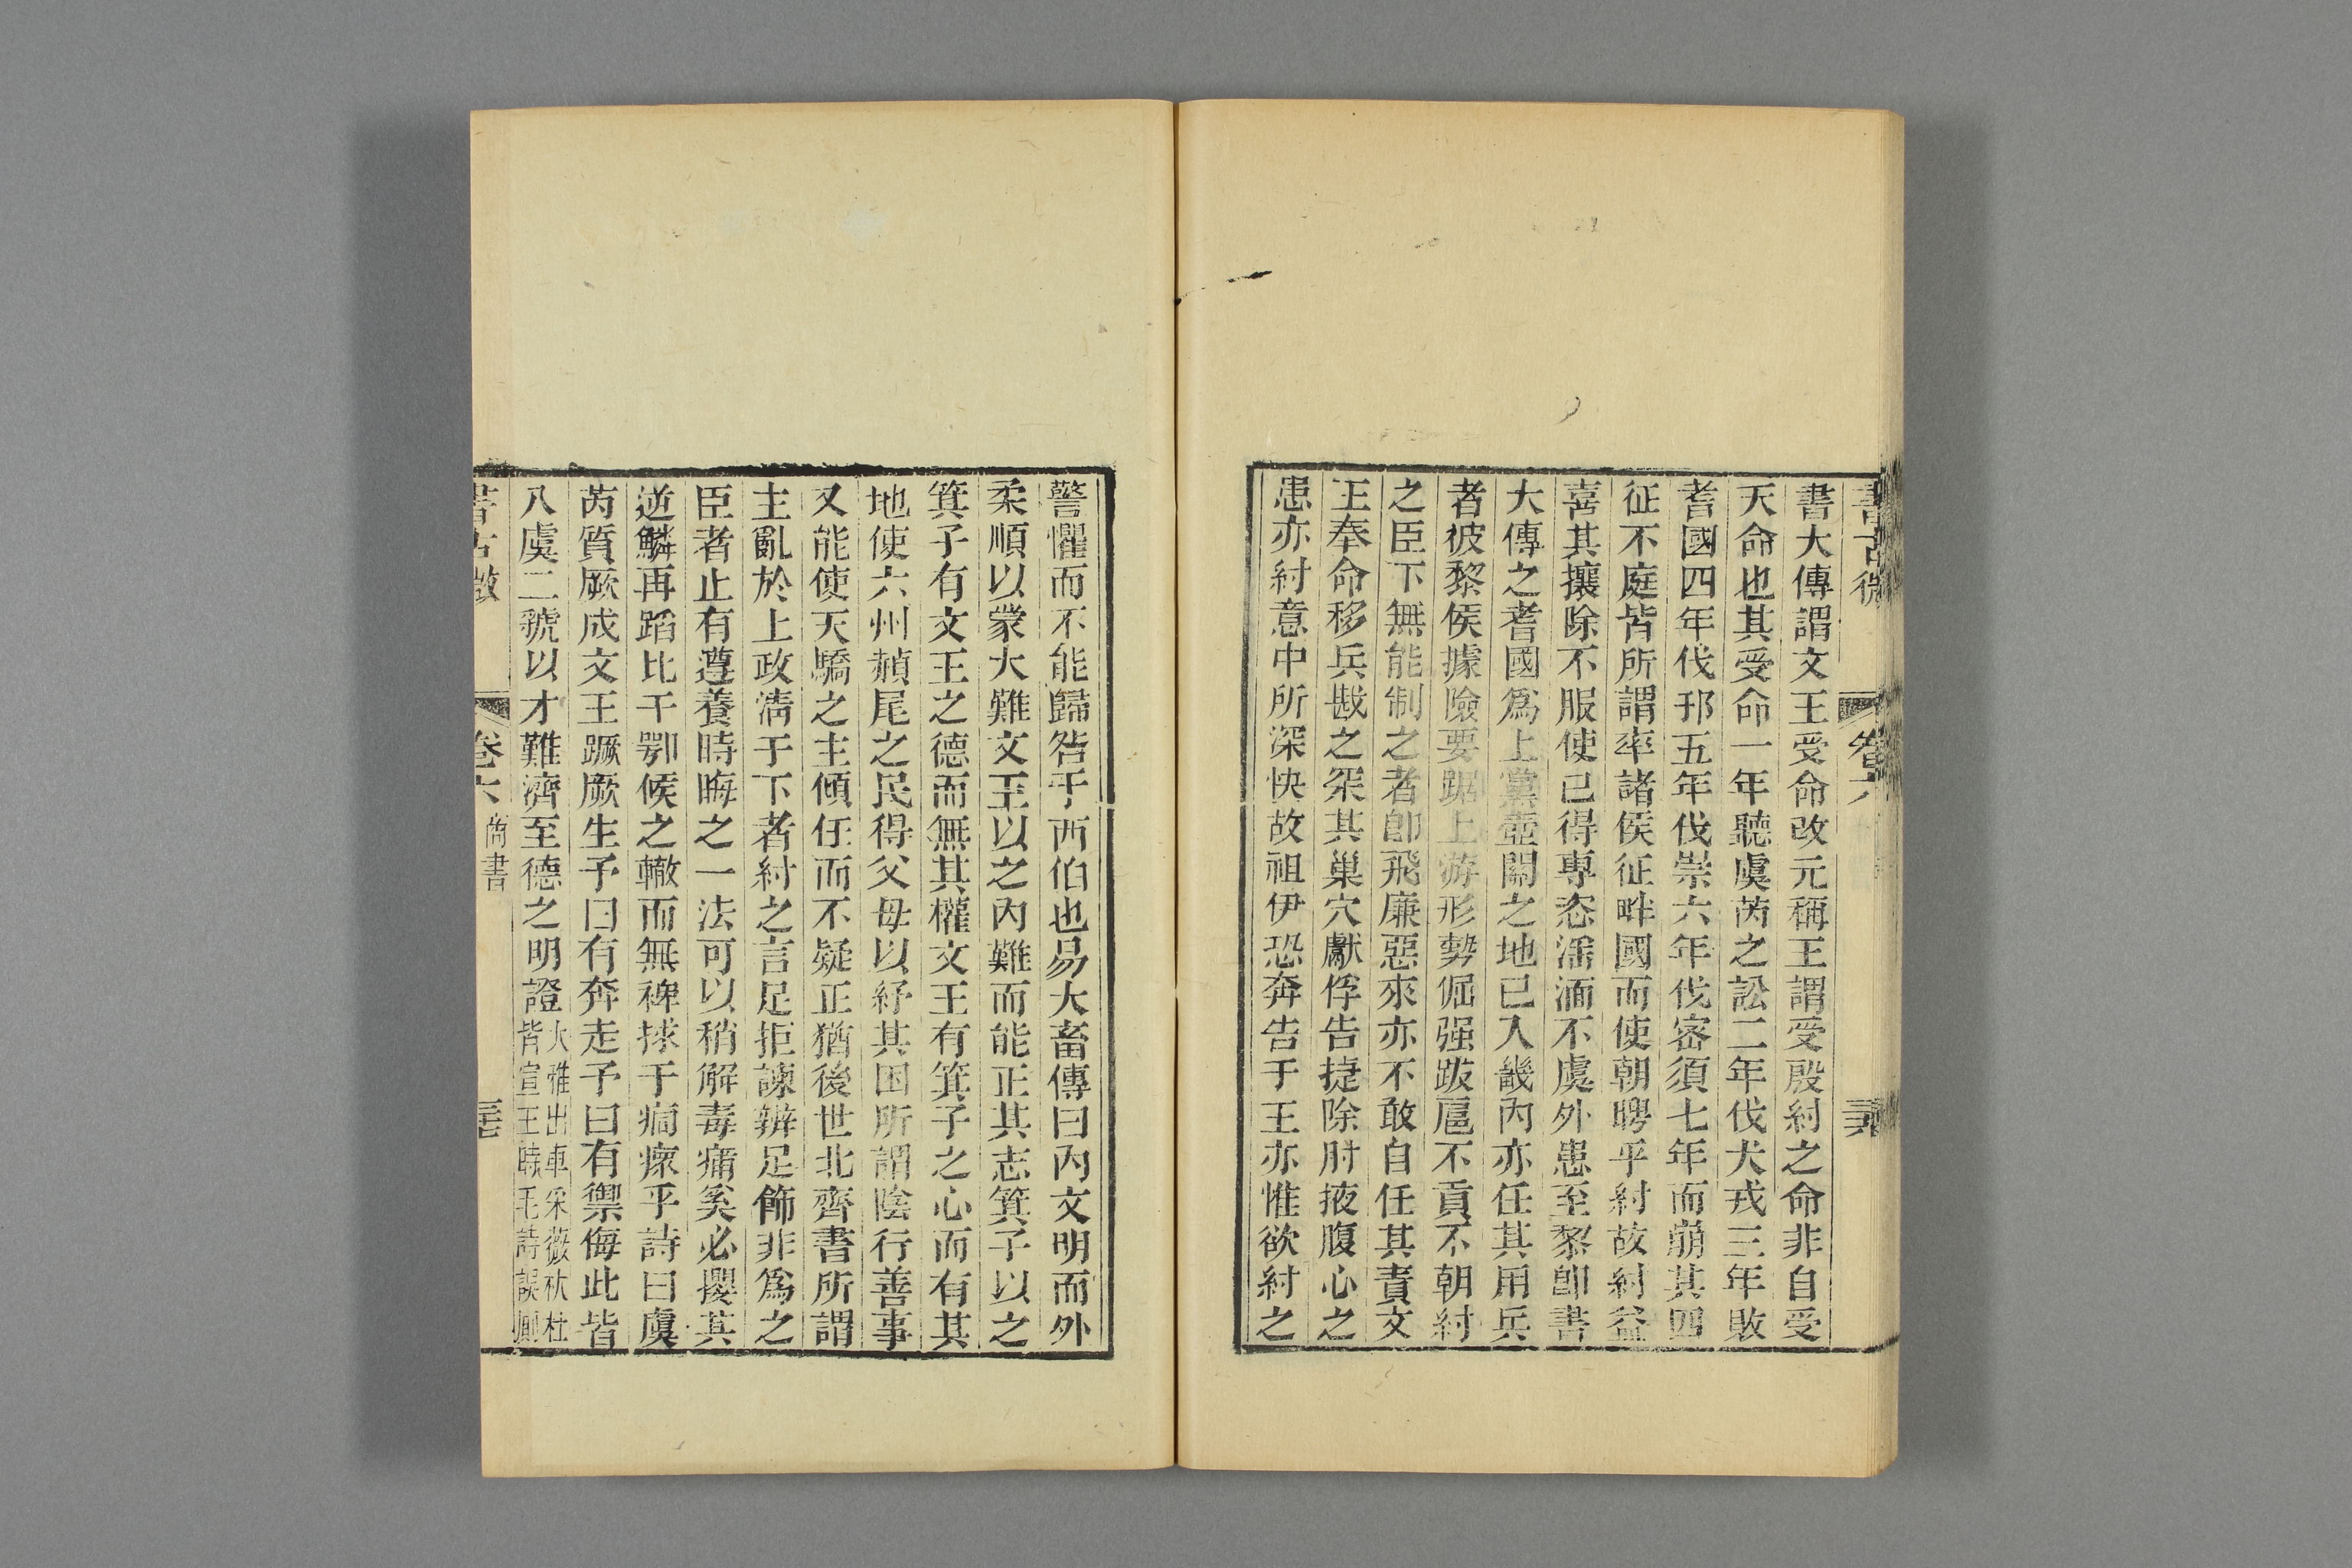 書古微 卷六
書大傳謂文王受命改元稱王謂受殷紂之命非自受
天命也其受命一年聽虞芮之訟二年伐犬戎三年敗
耆國四年伐邘五年伐崇六年伐密須七年而崩其四
征不庭皆所謂率諸侯征畔國而使朝聘乎紂故紂益
喜其攘除不服使己得專恣湎不虞外患至黎卽書
大傳之耆國爲上黨壺關之地已入畿內亦任其用兵
者彼黎侯據險要踞上游形勢倔强跋扈不貢不朝紂
之臣下無能制之者卽飛廉惡來亦不敢自任其責文
王奉命移兵戡之罙其巢穴獻俘告捷除肘掖腹心之
患亦紂意中所深快故祖伊恐奔告于王亦惟欲紂之
警懼而不能歸咎于西伯也易大畜傳曰內文明而外
柔順以蒙大難文王以之內難而能正其志箕子以之
箕子有文王之德而無其權文王有箕子之心而有其
地使六州赬尾之民得父母以紓其困所謂陰行善事
又能使天驕之主傾任而不疑正猶後世北齊書所謂
主亂於上政淸于下者紂之言足拒諫辨足飾非爲之
臣者止有遵養時晦之一法可以稍解毒痡奚必攖其
逆鱗再蹈比干鄂侯之轍而無裨捄于痌瘝乎詩曰虞
芮質厥成文王蹶厥生予曰有奔走予曰有禦侮此皆
八虞二虢以才難濟至德之明證大雅出車采薇杕杜皆宣王時毛詩誤
書古微 卷六 尚書